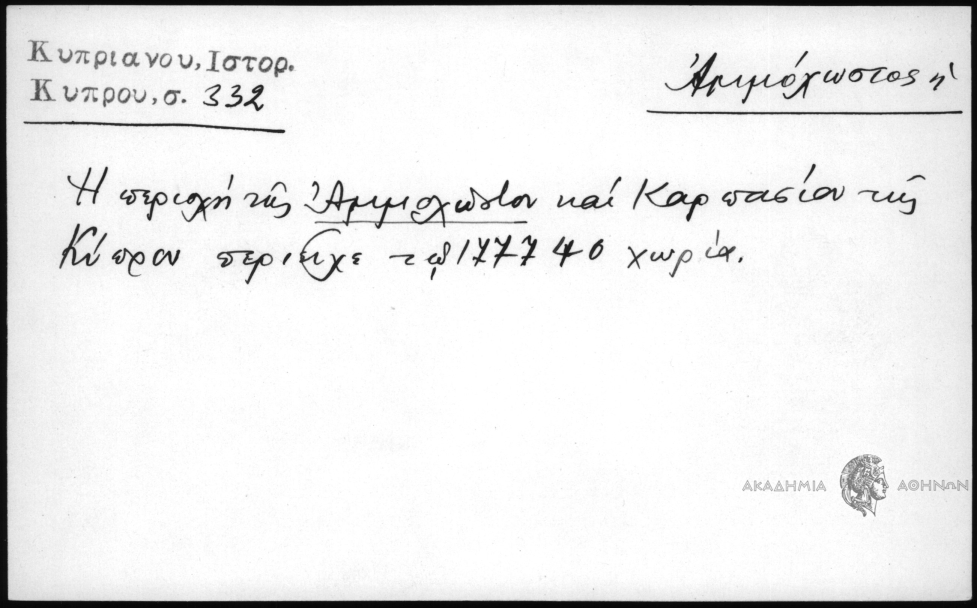 Κυπριανου, Ιστορ.
Κυπρου, σ. 332
Ἀμμόχωστος ἡ
Ἡ περιοχή τῆς Ἀμμοχώστου καί Καρπασίου τῆς
Κύπρου περιεῖχε τῷ 1777 40 χωρία.
ΑΚΑΔΗΜΙΑ ΑΘΗΝΩΝ